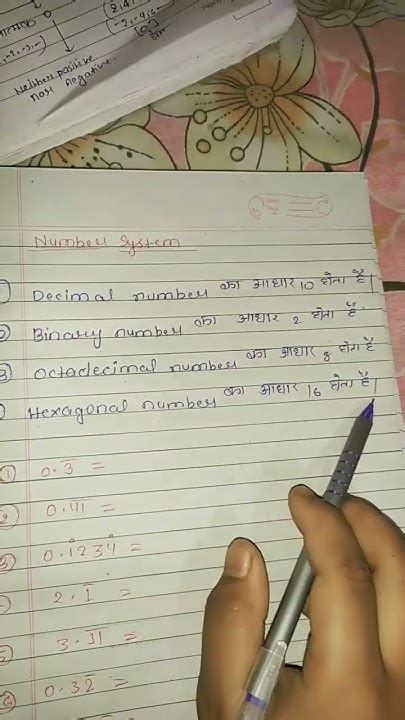 Neither positive
nor negative.
Number System
Decimal number का आधार 10 होता है।
Binary number का आधार 2 होता है।
③ Octadecimal number का आधार 8 होता है
Hexagonal number का आधार 16 होता है।
① 0.3̅ =
② 0.4̅1̅ =
③ 0.1̇234̇ =
2.1̅ =
3.3̅1̅ =
⑥ 0.32̅ =